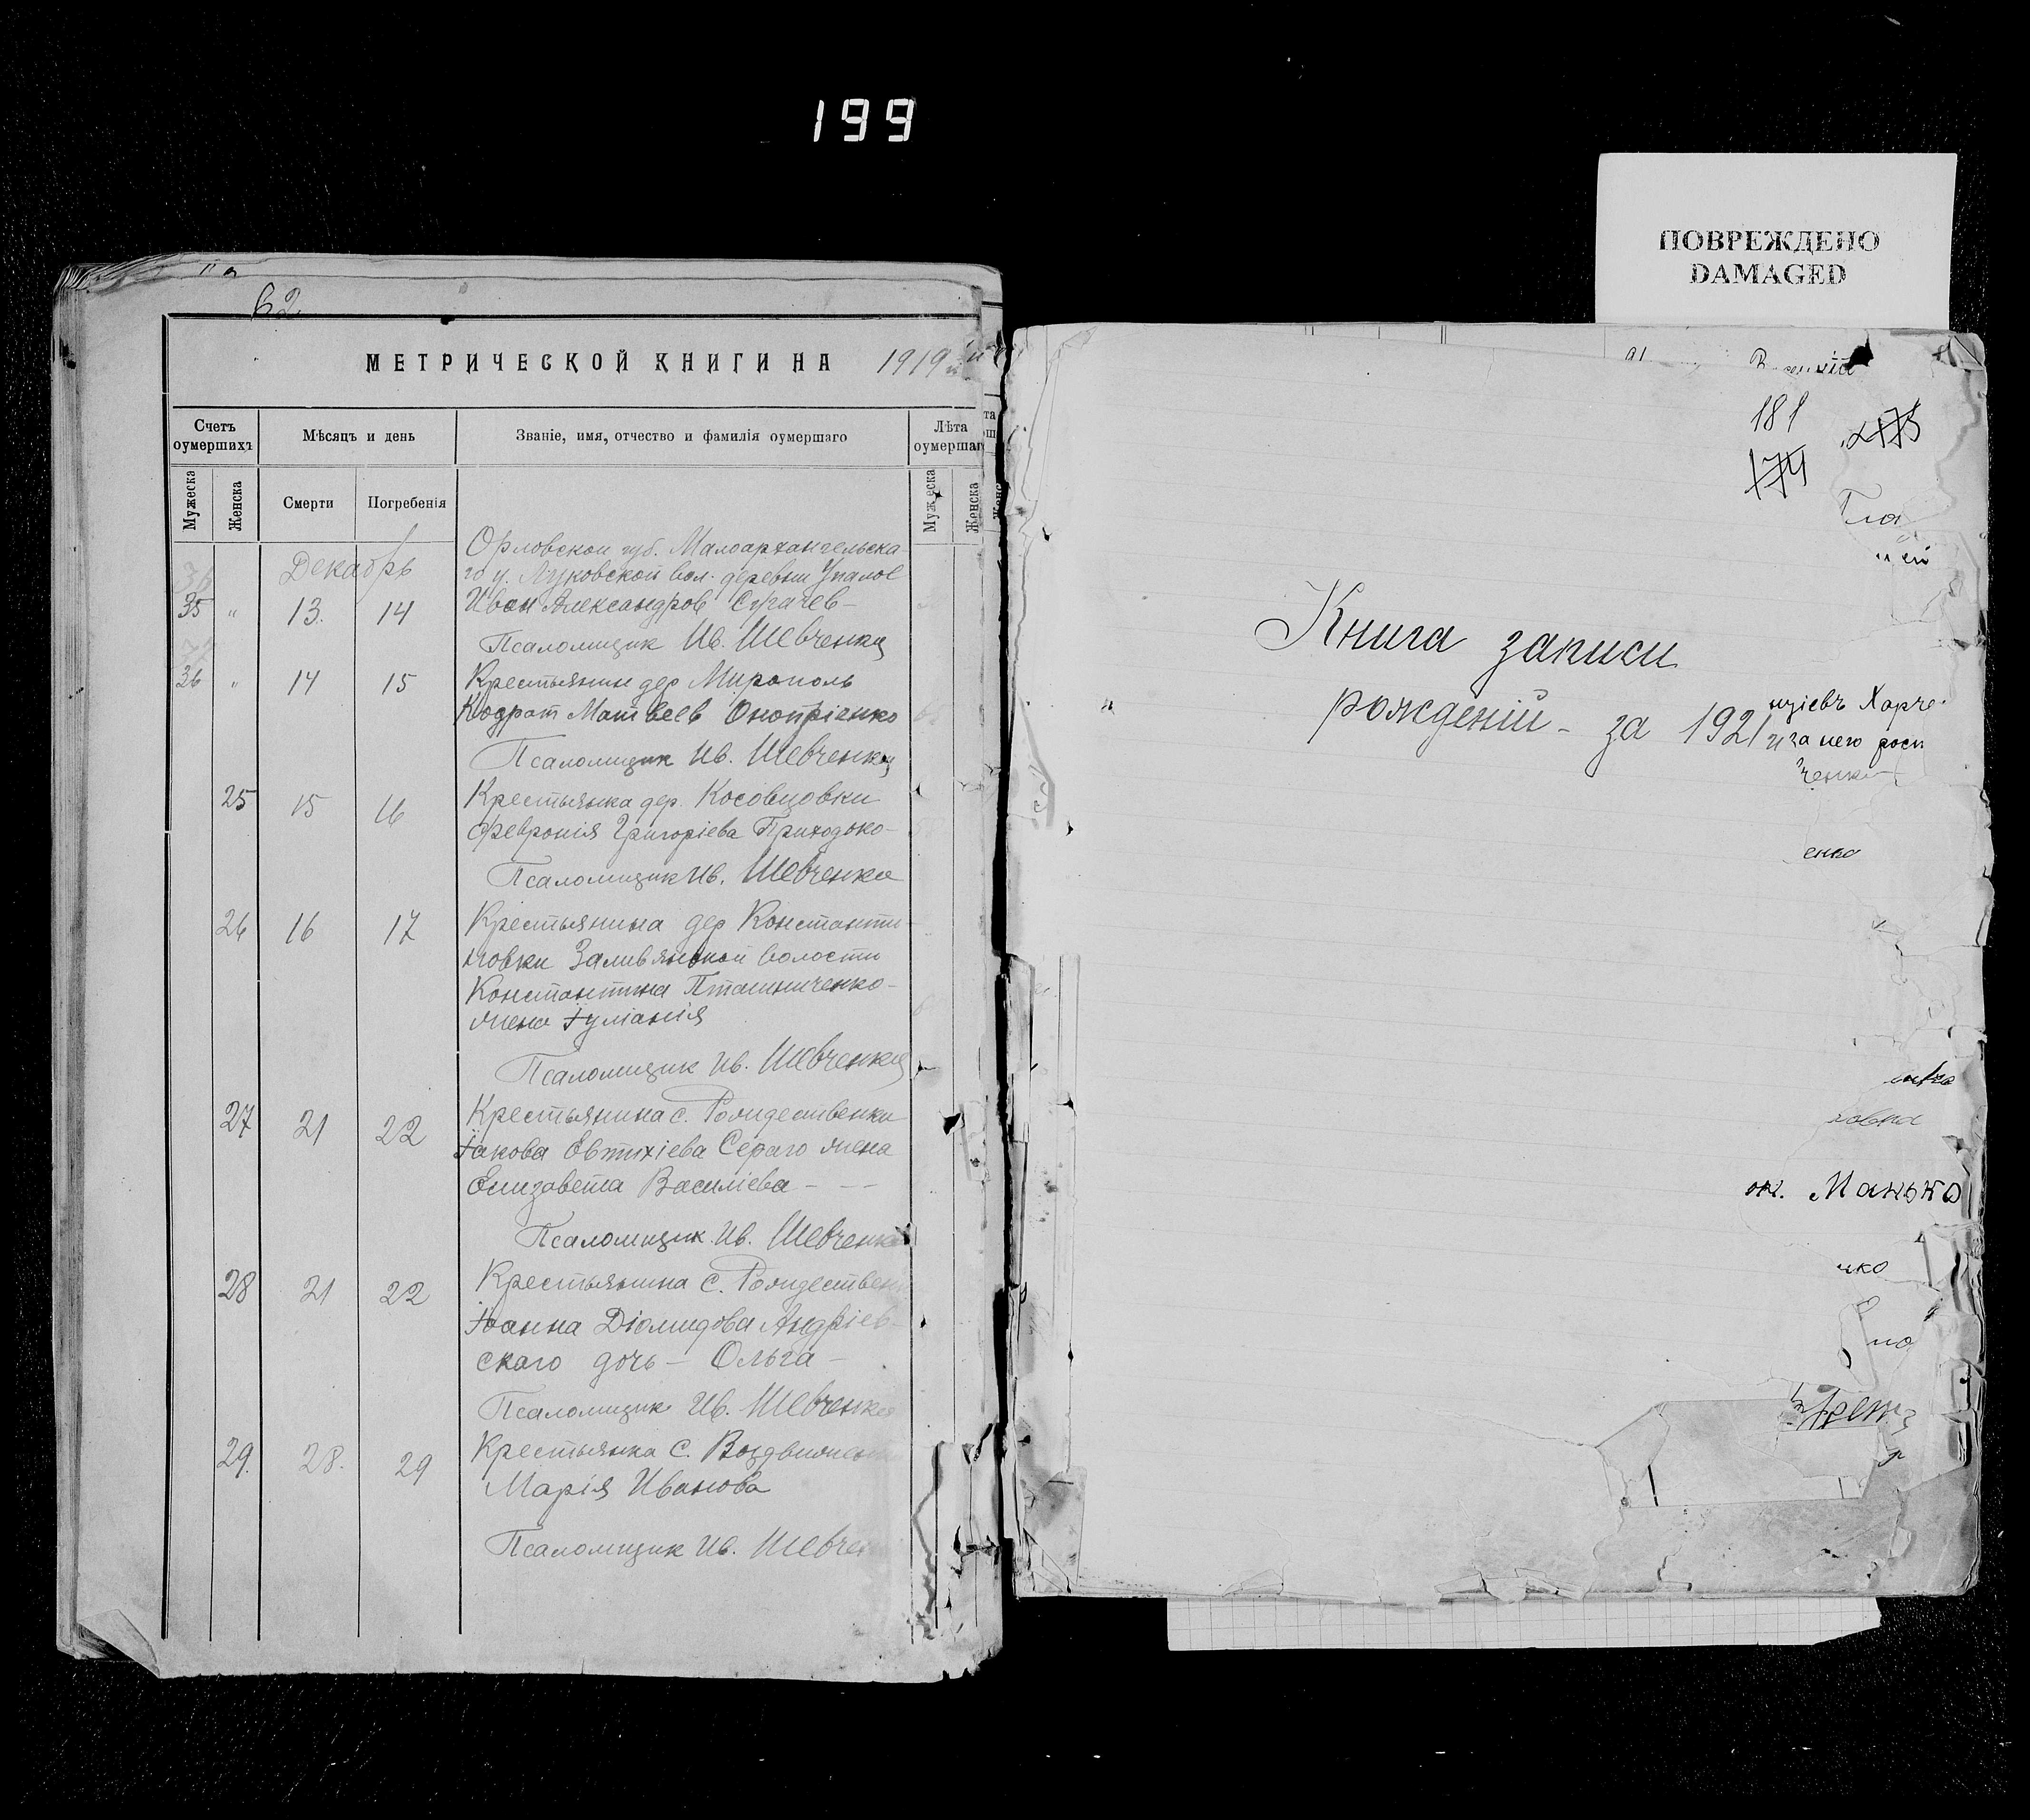 199
ПОВРЕЖДЕНО
DAMAGED
62
МЕТРИЧЕСКОЙ КНИГИ НА 1919
Счетъ оумершихъ
Мѣсяцъ и день
Званіе, имя, отчество и фамилія оумершаго
Лѣта оумершаг
Мужеска
Женска
Смерти
Погребенія
Мужеска
Женска
Декабрь
Орловской губ. Малоархангельска-
го у. Луковской вол. деревни
35 " 13. 14 Иван Александров
Псаломщик Ив. Шевченко
36 " 14 15 Крестьянин дер Мирополь
Кодрат Матвеев Оноприенко
Псаломщик Ив. Шевченко
25 15 16 Крестьянка дер. Косовцовки
Февронія Григоріева Приходько-
Псаломщик Ив. Шевченко
26 16 17 Крестьянина дер Константи-
новки волости
Константина Пташниченко-
жена Іуліанія
Псаломщик Ив. Шевченко
27 21 22 Крестьянина с. Рождественки
Іакова Евтихіева Сераго жена
Елизавета Василіева - - -
Псаломщик Ив. Шевченко
28 21 22 Крестьянина с. Рождествен
Іоанна Діомидова Андріев-
скаго дочь - Ольга -
Псаломщик Ив. Шевченко
29. 28. 29 Крестьянка с. Воздвижен
Марія Иванова
Псаломщик Ив. Шевчен
181
174
175
Книга записи
рожденій - за 1921
нціевъ Харче
за него росп
ченко
енко
ок. Манько
нко
но